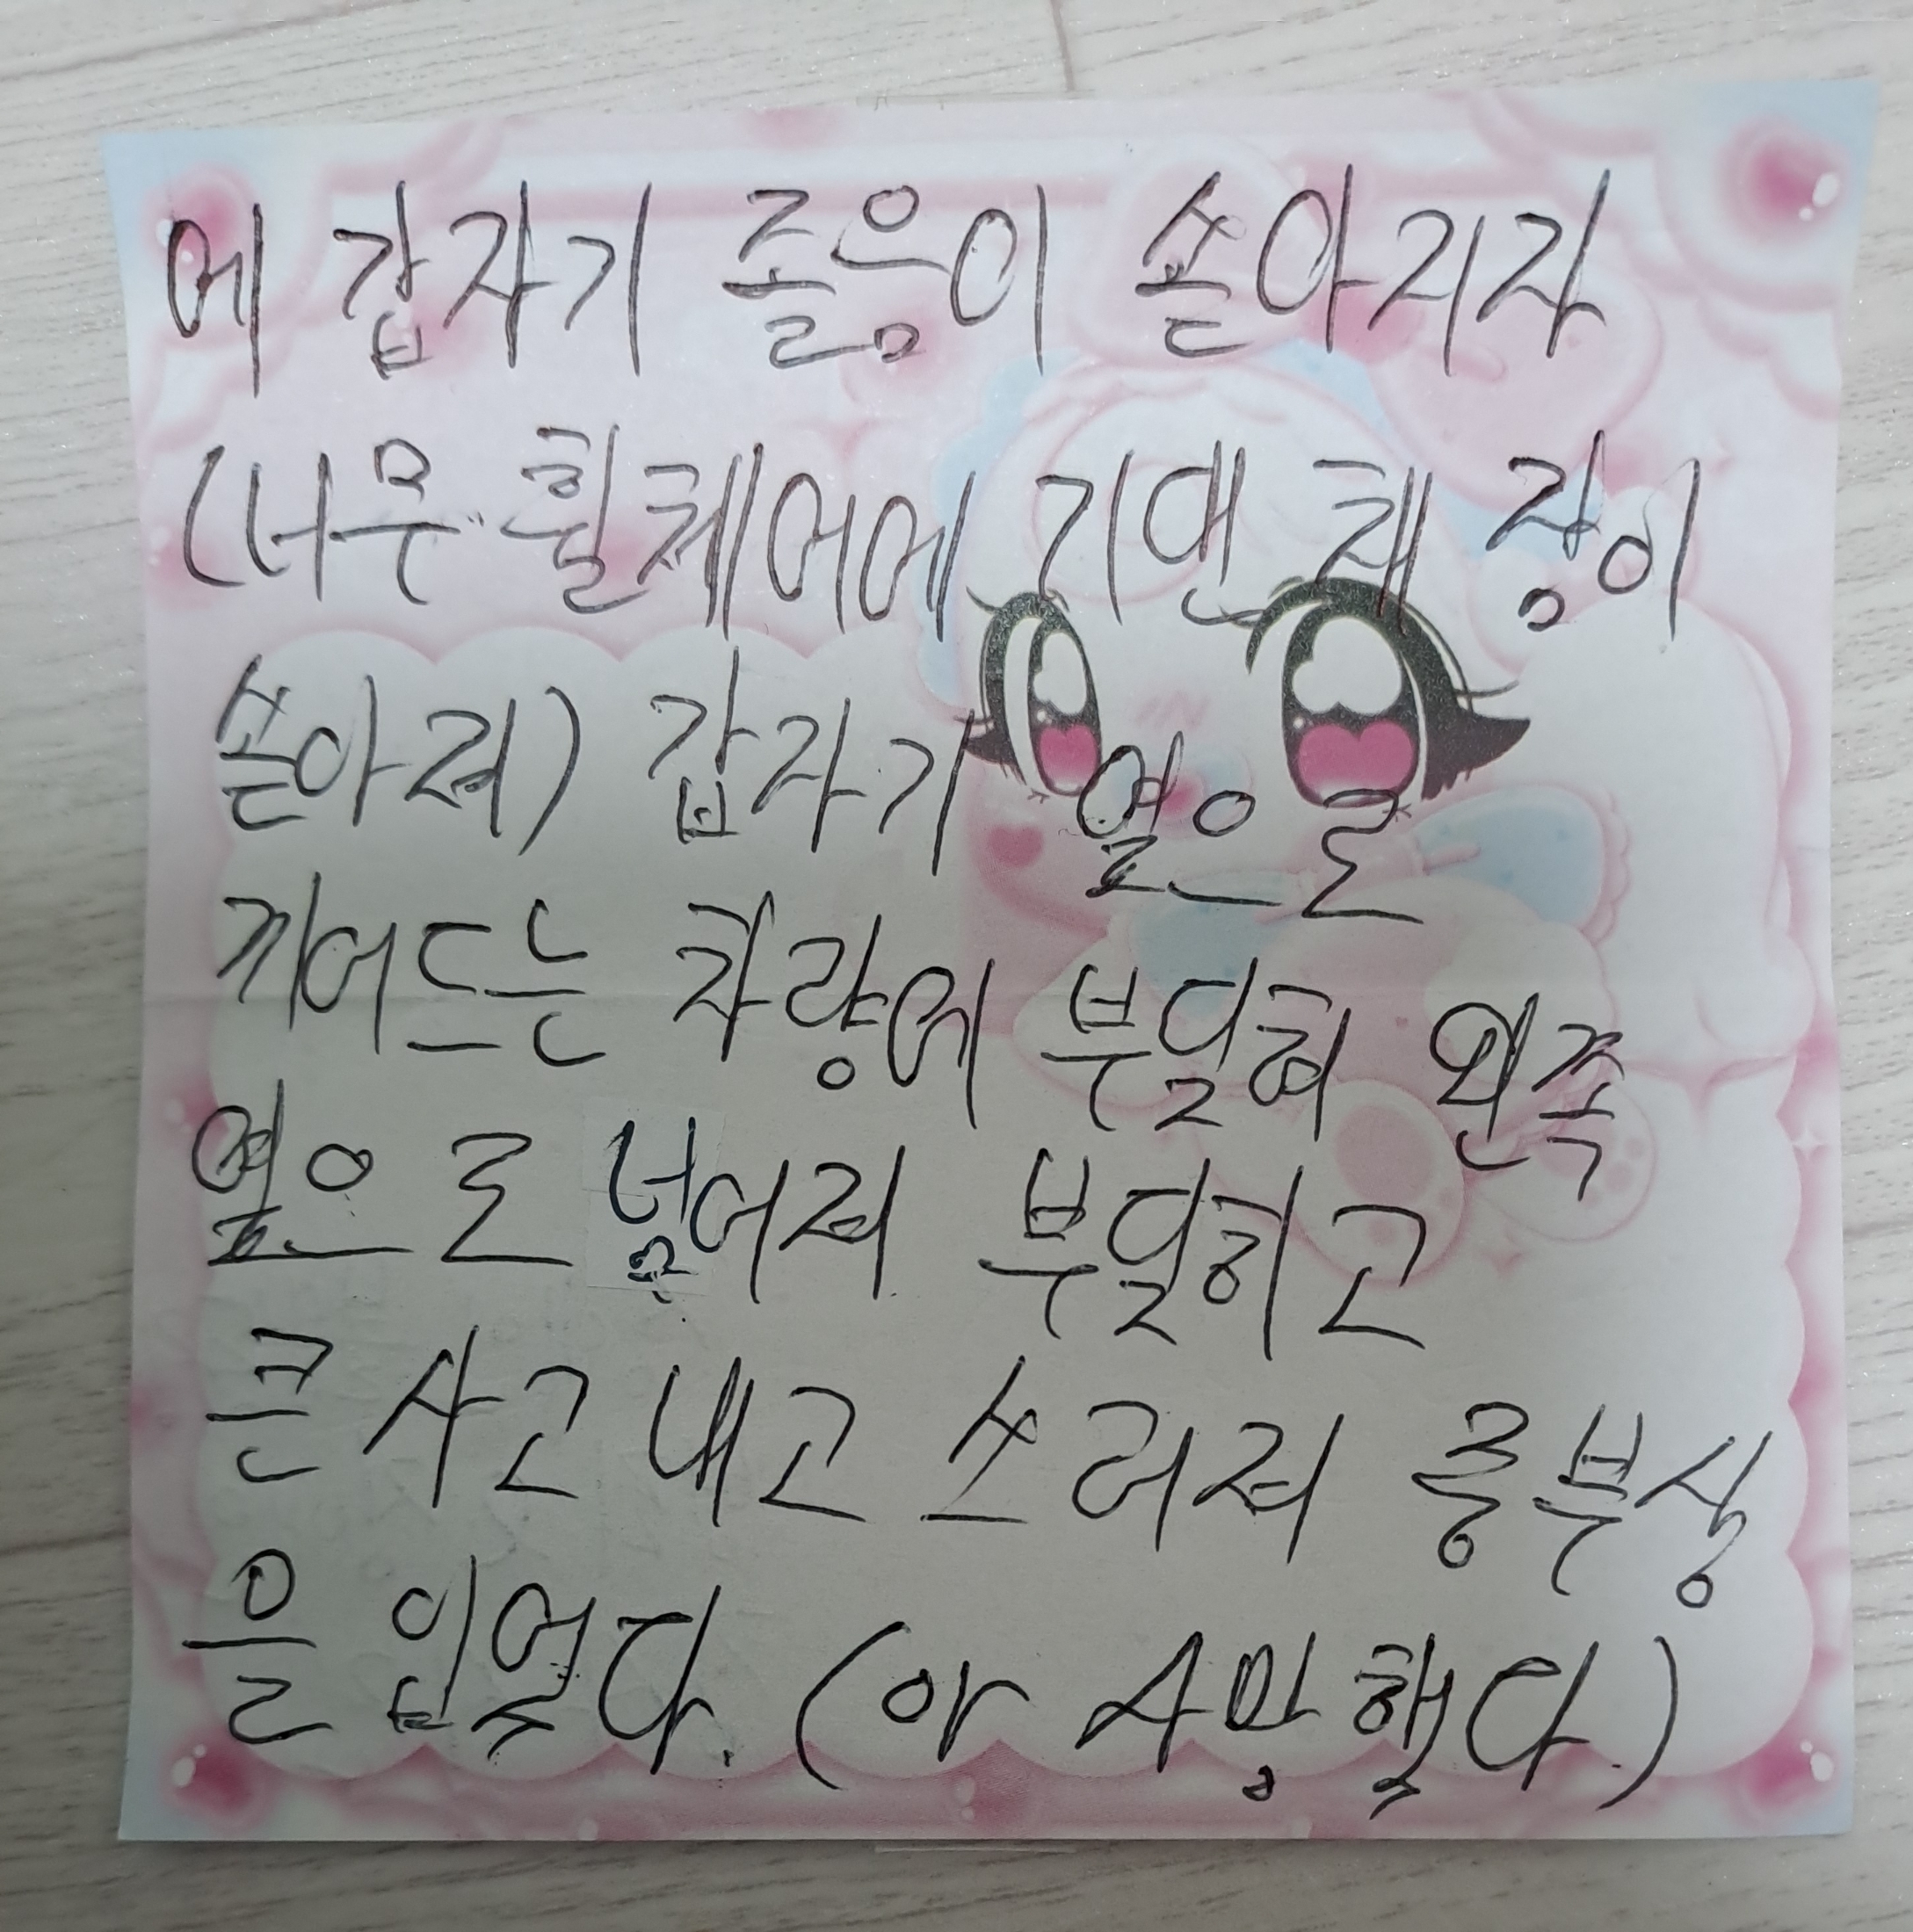 에 갑자기 졸음이 쏟아지자
(너무 휠체어에 기댄 채 잠이
쏟아져) 갑자기 옆으로
끼어드는 차량에 부딪혀 왼쪽
옆으로 넘어져 부딪히고
큰 사고 내고 쓰러져 중부상
을 입었다. (or 사망했다.)